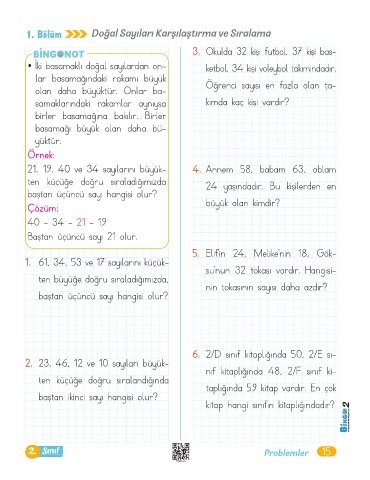 1. Bölüm
Doğal Sayıları Karşılaştırma ve Sıralama
BİNGO NOT
• İki basamaklı doğal sayılardan on-
lar basamağındaki rakamı büyük
olan daha büyüktür. Onlar ba-
samaklarındaki rakamlar aynıysa
birler basamağına bakılır. Birler
basamağı büyük olan daha bü-
yüktür.
Örnek:
21, 19, 40 ve 34 sayılarını büyük-
ten küçüğe doğru sıraladığımızda
baştan üçüncü sayı hangisi olur?
Çözüm:
40 - 34 - 21 - 19
Baştan üçüncü sayı 21 olur.
1. 61, 34, 53 ve 17 sayılarını küçük-
ten büyüğe doğru sıraladığımızda,
baştan üçüncü sayı hangisi olur?
2. 23, 46, 12 ve 10 sayıları büyük-
ten küçüğe doğru sıralandığında
baştan ikinci sayı hangisi olur?
3. Okulda 32 kişi futbol, 37 kişi bas-
ketbol, 34 kişi voleybol takımındadır.
Öğrenci sayısı en fazla olan ta-
kımda kaç kişi vardır?
4. Annem 58, babam 63, ablam
24 yaşındadır. Bu kişilerden en
büyük olan kimdir?
5. Elif'in 24, Melike'nin 18, Gök-
su'nun 32 tokası vardır. Hangisi-
nin tokasının sayısı daha azdır?
6. 2/D sınıf kitaplığında 50, 2/E sı-
nıf kitaplığında 48, 2/F sınıf ki-
taplığında 59 kitap vardır. En çok
kitap hangi sınıfın kitaplığındadır?
BİNGO 2
2. Sınıf
Problemler 15